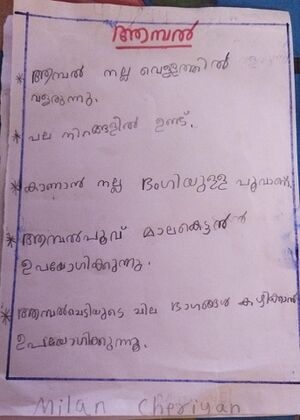 ആമ്പൽ
* ആമ്പൽ നല്ല വെള്ളത്തിൽ
വളരുന്നു.
* പല നിറങ്ങളിൽ ഉണ്ട്.
* കാണാൻ നല്ല ഭംഗിയുള്ള പൂവാണ്.
* ആമ്പൽപൂവ് മാലകെട്ടൻ
ഉപയോഗിക്കുന്നു.
* ആമ്പൽചെടിയുടെ ചില ഭാഗങ്ങൾ കഴിക്കാൻ
ഉപയോഗിക്കുന്നു.
Milan Cheriyan